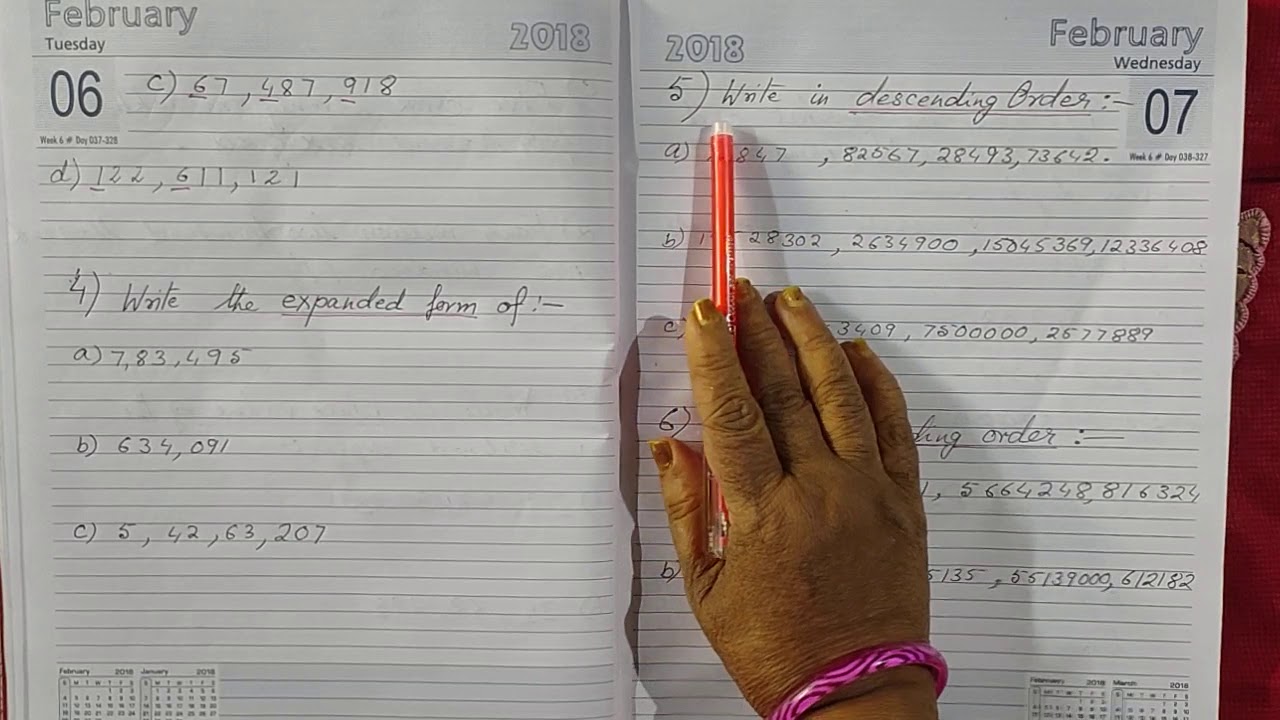 February
Tuesday
2018
06
Week 6 # Day 037-328
c) 67,487,918
d) 122,611,121
4) Write the expanded form of :-
a) 7,83,495
b) 634,091
c) 5,42,63,207
February 2018 January 2018
2018
February
Wednesday
07
Week 6 # Day 038-327
5) Write in descending Order :-
a) 847, 82567, 28493, 73642.
b) 28302, 2634900, 15045369, 12336408
c) 3409, 7500000, 2577889
6) order :-
5664248, 816324
b) 5135, 55139000, 612182
February 2018 March 2018